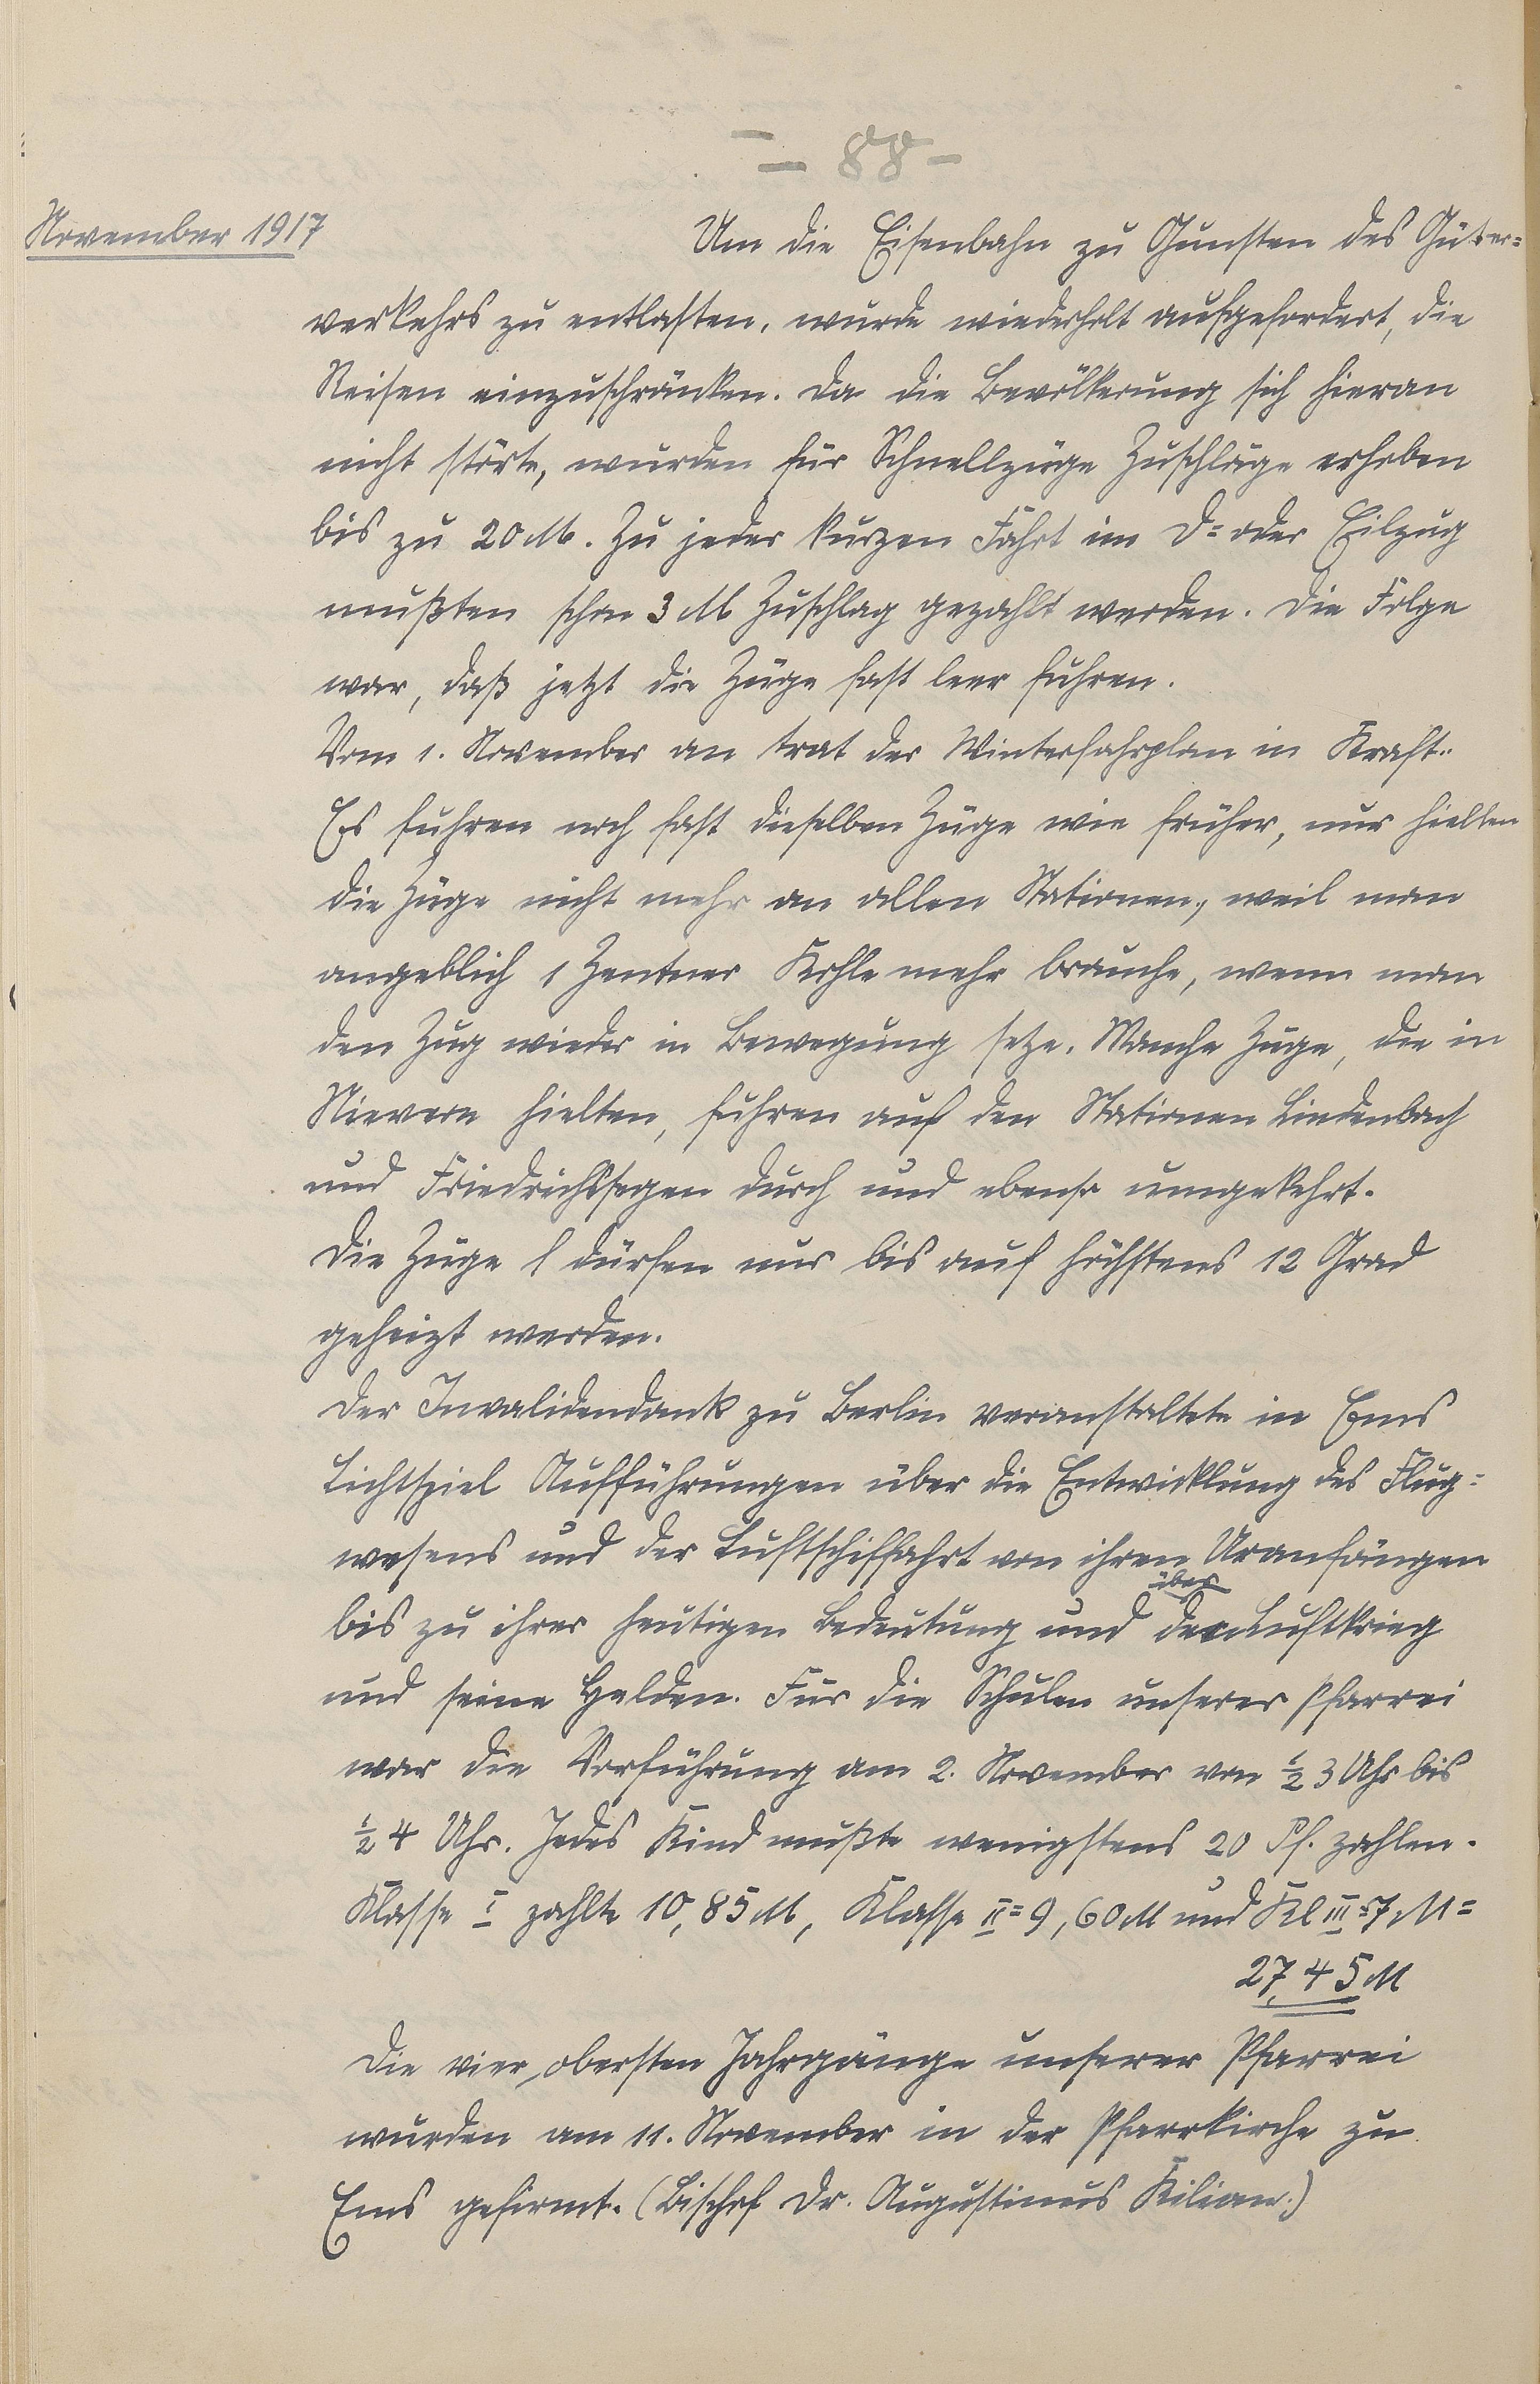 - 88 -
November 1917
Um die Eisenbahn zu Gunsten des Güter=
verkehrs zu entlasten, wurde wiederholt aufgefordert, die
Reisen einzuschränken. Da die Bevölkerung sich hieran
nicht störte, wurden für Schnellzüge Zuschläge erhoben
bis zu 20 M. Zu jeder kurzen Fahrt im D= oder Eilzug
mußten schon 3 M Zuschlag gezahlt werden. Die Folge
war, daß jetzt die Züge fast leer fuhren.
Vom 1. November an trat der Winterfahrplan in Kraft.
Es fuhren noch fast dieselben Züge wie früher, nur hielten
die Züge nicht mehr an allen Stationen, weil man
angeblich 1 Zentner Kohle mehr brauche, wenn man
den Zug wieder in Bewegung setze. Manche Züge, die in
Nievern hielten, fuhren auf den Stationen Lindenbach
und Friedrichssegen durch und ebenso umgekehrt.
Die Züge dürfen nur bis auf höchstens 12 Grad
geheizt werden.
Der Invalidendank zu Berlin veranstaltete in Ems
Lichtspiel Aufführungen über die Entwicklung des Flug=
wesens und der Luftschiffahrt von ihren Uranfängen
über
bis zu ihrer heutigen Bedeutung und den Luftkrieg
und seine Helden. Für die Schulen unserer Pfarrei
war die Vorführung am 2. November von ½ 3 Uhr bis
½ 4 Uhr. Jedes Kind mußte wenigstens 20 Pf. zahlen.
Klasse I zahlte 10,85 M, Klasse II = 9,60 M und Kl III = 7 M =
27,45 M
Die vier obersten Jahrgänge unserer Pfarrei
wurden am 11. November in der Pfarrkirche zu
Ems gefirmt. (Bischof Dr. Augustinus Kilian.)